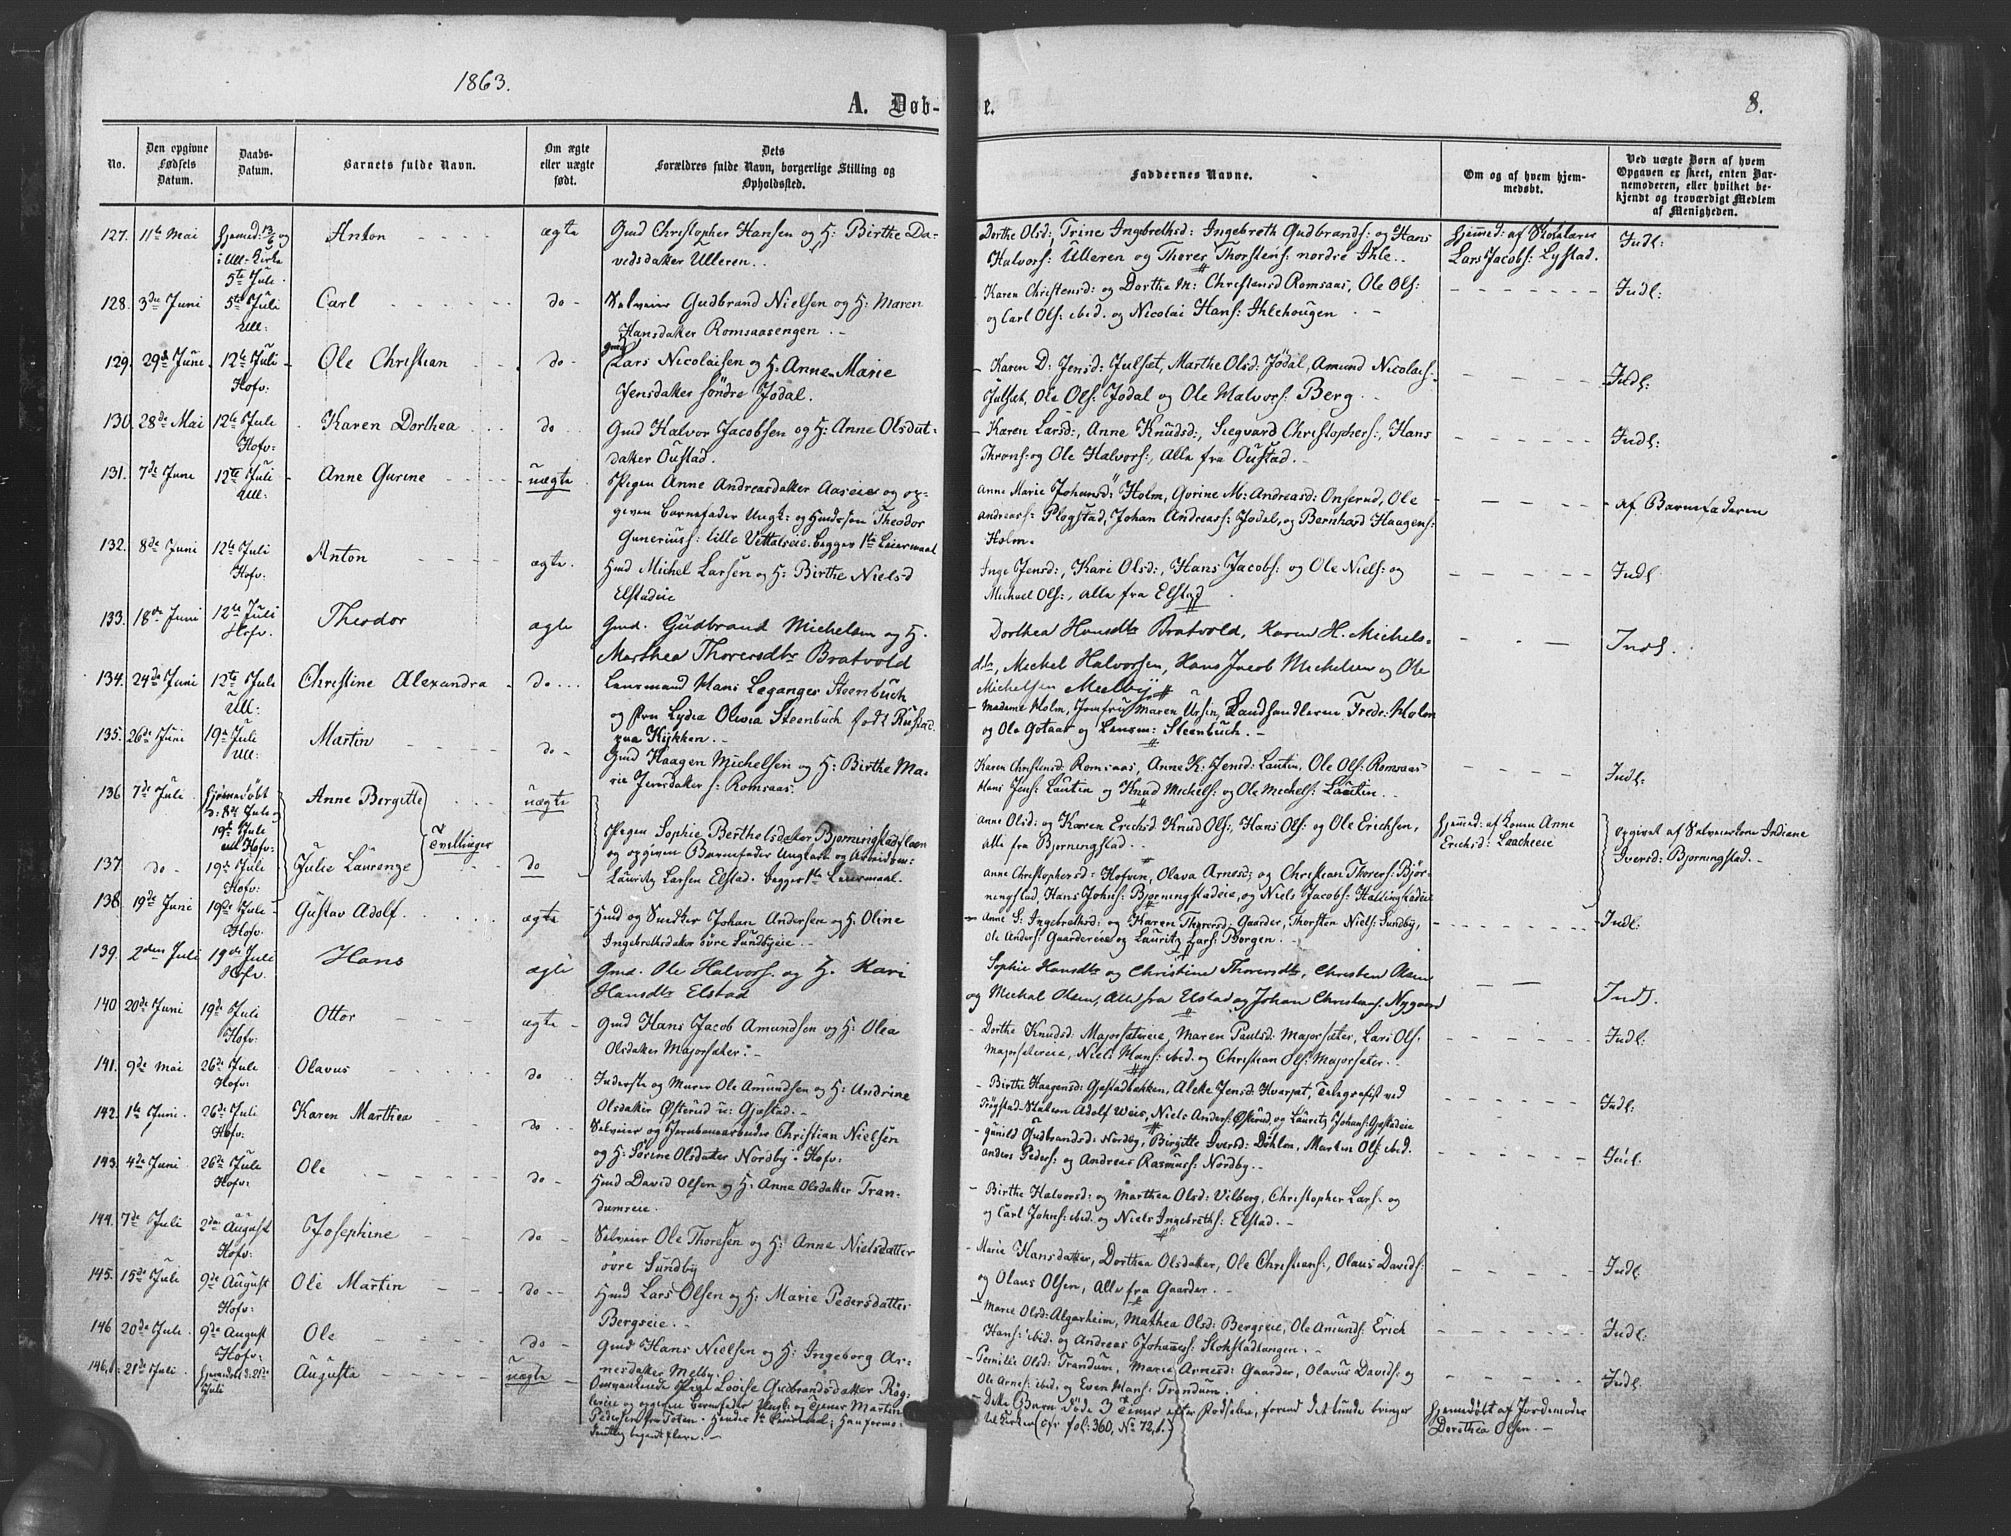 1863.
A. Døb-
e.
8.
No.
Den opgivne Fødsels Datum.
Daabs-Datum.
Barnets fulde Navn.
Om ægte eller uægte født.
Dets Forældres fulde Navn, borgerlige Stilling og Opholdssted.
Faddernes Navne.
Om og af hvem hjemmedøbt.
Ved uægte Børn af hvem Opgaven er skeet, enten Barnemoderen, eller hvilket bekjendt og troværdigt Medlem af Menigheden.
127. 11te Mai Hjemmed: 13/6 og i Ull: Kirke 5te Juli. Anton ægte Gmd Christopher Hansen og H: Birthe Da-
vedsdatter Ulleren. Dorthe Olsd, Trine Ingebrethsd: Ingebreth Gudbrands: og Hans
Halvors: Ulleren og Thorer Thorstens: nordre Ihle. Hjemmed: af Skolelærer
Lars Jacobs: Lystad. Indl:
128. 3die Juni 5te Juli Ull: Carl do Selveier Gudbrand Nielsen og H: Maren
Hansdatter Romsaasengen. Karen Christensd: og Dorthe M: Christensd Romsaas, Ole Ols:
og Carl Ols: ibid. og Nicolai Hans: Ihlehougen Indl:
129. 29de Juni 12te Juli Hofv: Ole Christian do Gmd Lars Nicolaisen og H: Anne Marie
Jensdatter søndre Jødal. Karen D: Jensd: Julset, Marthe Olsd: Jødal, Amund Nicolais:
Julset, Ole Ols: Jødal og Ole Halvors: Berg. Indl:
130. 28de Mai 12te Juli Hofv: Karen Dorthea do Gmd Halvor Jacobsen og H: Anne Olsdat-
datter Oustad. Karen Larsd:, Anne Knudsd:, Siegvard Christophers:, Hans
Throns: og Ole Halvors:, Alle fra Oustad. Indl:
131. 7de Juni 12te Juli Ull: Anne Gurine uægte Pigen Anne Andreasdatter Aaseie og op-
given Barnefader Ungk: og Gmdssøn Theodor
Guneriuss: lille Vettalseie. begges 1ste Leiermaal Anne Marie Johansd: Holm, Gorine M: Andreasd: Onserud, Ole
Andreass: Plogstad, Johan Andreass: Jødal, og Bernhard Haagens:
Holm. af Barnefaderen
132. 8de Juni 12te Juli Hofv: Anton ægte Hmd Michel Larsen og H: Birthe Nielsd
Elstadeie Inge Jensd:, Kari Olsd:, Hans Jacobs: og Ole Niels: og
Michael Ols:, Alle fra Elstad Indl:
133. 18de Juni 12te Juli Hofv. Theodor ægte Gmd. Gudbrand Michelsen og H.
Marthea Thoresdtr Bratvold Dorthea Hansdtr Bratvold, Karen H. Michels-
dtr, Michel Halvorsen, Hans Jacob Michelsen og Ole
Michelsen Melby Indl.
134. 24de Juni 12te Juli Ull: Christine Alexandra do Lensmand Hans Leganger Steenbuch
og Fru Lydia Olivia Steenbuch født Rustad
paa Kykken. Madame Holm, Jomfru Maren Ursin, Landhandlerne Fredr: Holm
og Ole Gotaas og Lensm: Steenbuch.
135. 26de Juni 19de Juli Ull: Martin do Gmd Haagen Michelsen og H: Birthe Ma-
rie Jensdatter s: Romsaas. Karen Christensd: Romsaas, Anne K: Jensd: Lautin, Ole Ols: Romsaas
Hans Jens: Lautin og Knud Michels: og Ole Michels: Lautin. Indl:
136 7de Juli Hjemmedøbt d: 8de Juli og 19de Juli ved Hofv: Anne Bergitte Tvillinger uægte Pigen Sophie Berthelsdatter Bjørningstad
og opgiven Barnefader Ungkarl og
Lauritz Larsen Elstad. begges 1ste Leiermaal. Anne Olsd: og Karen Erichsd Knud Ols:, Hans Ols: og Ole Erichsen,
Alle fra Bjørningstad. Hjemmed: af Konen Anne
Erichsd: Laacheeie opgivet af Selveierkone Indiane
Iversd: Bjørningstad.
137. do 19de Juli Hofv: Julie Laurenze do Anne Christophersd: Hofvin, Olava Arnesd: og Christian Thorers: Bjør-
ningstad, Hans Johns: Bjørningstadeie, og Niels Jacobs: Hallingstadeie
138 19de Juni 19de Juli Hofv. Gustav Adolf. ægte Hmd og Snidker Johan Andersen og H. Oline
Ingebrethsdatter øvre Sundbyeie. Anne S: Ingebrethsd: og Karen Thorersd: Gaarder, Thorsten Niels: Sundby,
Ole Anders: Gaardereie og Lauritz Lars: Borgen. Indl:
139. 2den Juli 19de Juli Hofv. Hans ægte Gmd. Ole Halvors. og H. Kari
Hansdtr Elstad Sophie Hansdtr og Christine Thoresdtr, Christen Olsen
og Michal Olsen, Alle fra Elstad og Johan Christians: Nygaard Indl.
140 20de Juni 19de Juli Hofv: Otto ægte Gmd Hans Jacob Amundsen og H: Olea
Olsdatter Majorsæter. Dorthe Knudsd: Majorsætereie, Maren Paulsd: Majorsæter, Lars Ols:
Majorsætereie, Niels Hans: ibid. og Christian Ols: Majorsæter. Indl:
141. 9de Mai 26de Juli Hofv: Olavus do Inderste og Murer Ole Amundsen og H: Andrine
Olsdatter Østerud u: Gjestad. Birthe Haagensd: Gjestadbakken, Aleke Jensd: Hvarpat, Telegrafist ved
Trøgstad Station Adolf Weis, Niels Anders: Østerud, og Lauritz Johans: Gjestadeie Indl:
142. 1ste Juni 26de Juli Hofv: Karen Marthea do Selveier og Jernbanearbeider Christian Nielsen
og H: Sørine Olsdatter Nordby i Hofv: Gunild Gudbrandsd: Nordby, Birgitte Iversd: Døhlen, Martin Ols: ibid.
Anders Peders: og Andreas Rasmuss: Nordby. Indl:
143. 4de Juni 26de Juli Hofv: Ole do Hmd David Olsen og H: Anne Olsdatter Tran-
dumeie. Birthe Halvorsd: og Marthea Olsd: Vilberg, Christopher Lars: og
og Carl Johns: ibid. og Niels Ingebreths: Elstad.
144. 7de Juli 2den August Hofv: Josephine do Selveier Ole Thoresen og H: Anne Nielsdatter
øvre Sundby Marie Hansdatter, Dorthea Olsdatter, Ole Christians:, Olaus Davids:
og Olaus Olsen, Alle fra Gaarder. Indl:
145. 15de Juli 9de August Hofv: Ole Martin do Hmd Lars Olsen og H: Marie Pedersdatter
Bergseie. Marie Olsd: Algarheim, Mathea Olsd: Bergseie, Ole Amunds: Erich
Hans: ibid. og Andreas Johannes: Stokstadtangen. Indl:
146 20de Juli 9de August Hofv: Ole do Gmd Hans Nielsen og H: Ingeborg Ar-
nesdatter Melby. Pernille Olsd: Trandum, Marie Arnesd: Gaarder, Olavus Davids: og
Ole Arnes: ibid. og Even Hans: Trandum. Indl:
146,b. 21de Juli Hjemdøbt d: 21de Juli Augusta uægte Omvankende Pige Lovise Gudbrandsdatter Røg-
leseie og opgiven Barnefader Ungk: og Tjener Martin
Pedersen fra Toten. Hendes 1ste Leiermaal, Han formo-
dentlig begaaet flere. Dette Barn døde 3 Timer efter Fødselen, forend det kunde bringes
til Kirken (cfr fol: 360, No 72,b.) Hjemmedøbt af Jordemoder
Dorothea Olsen.